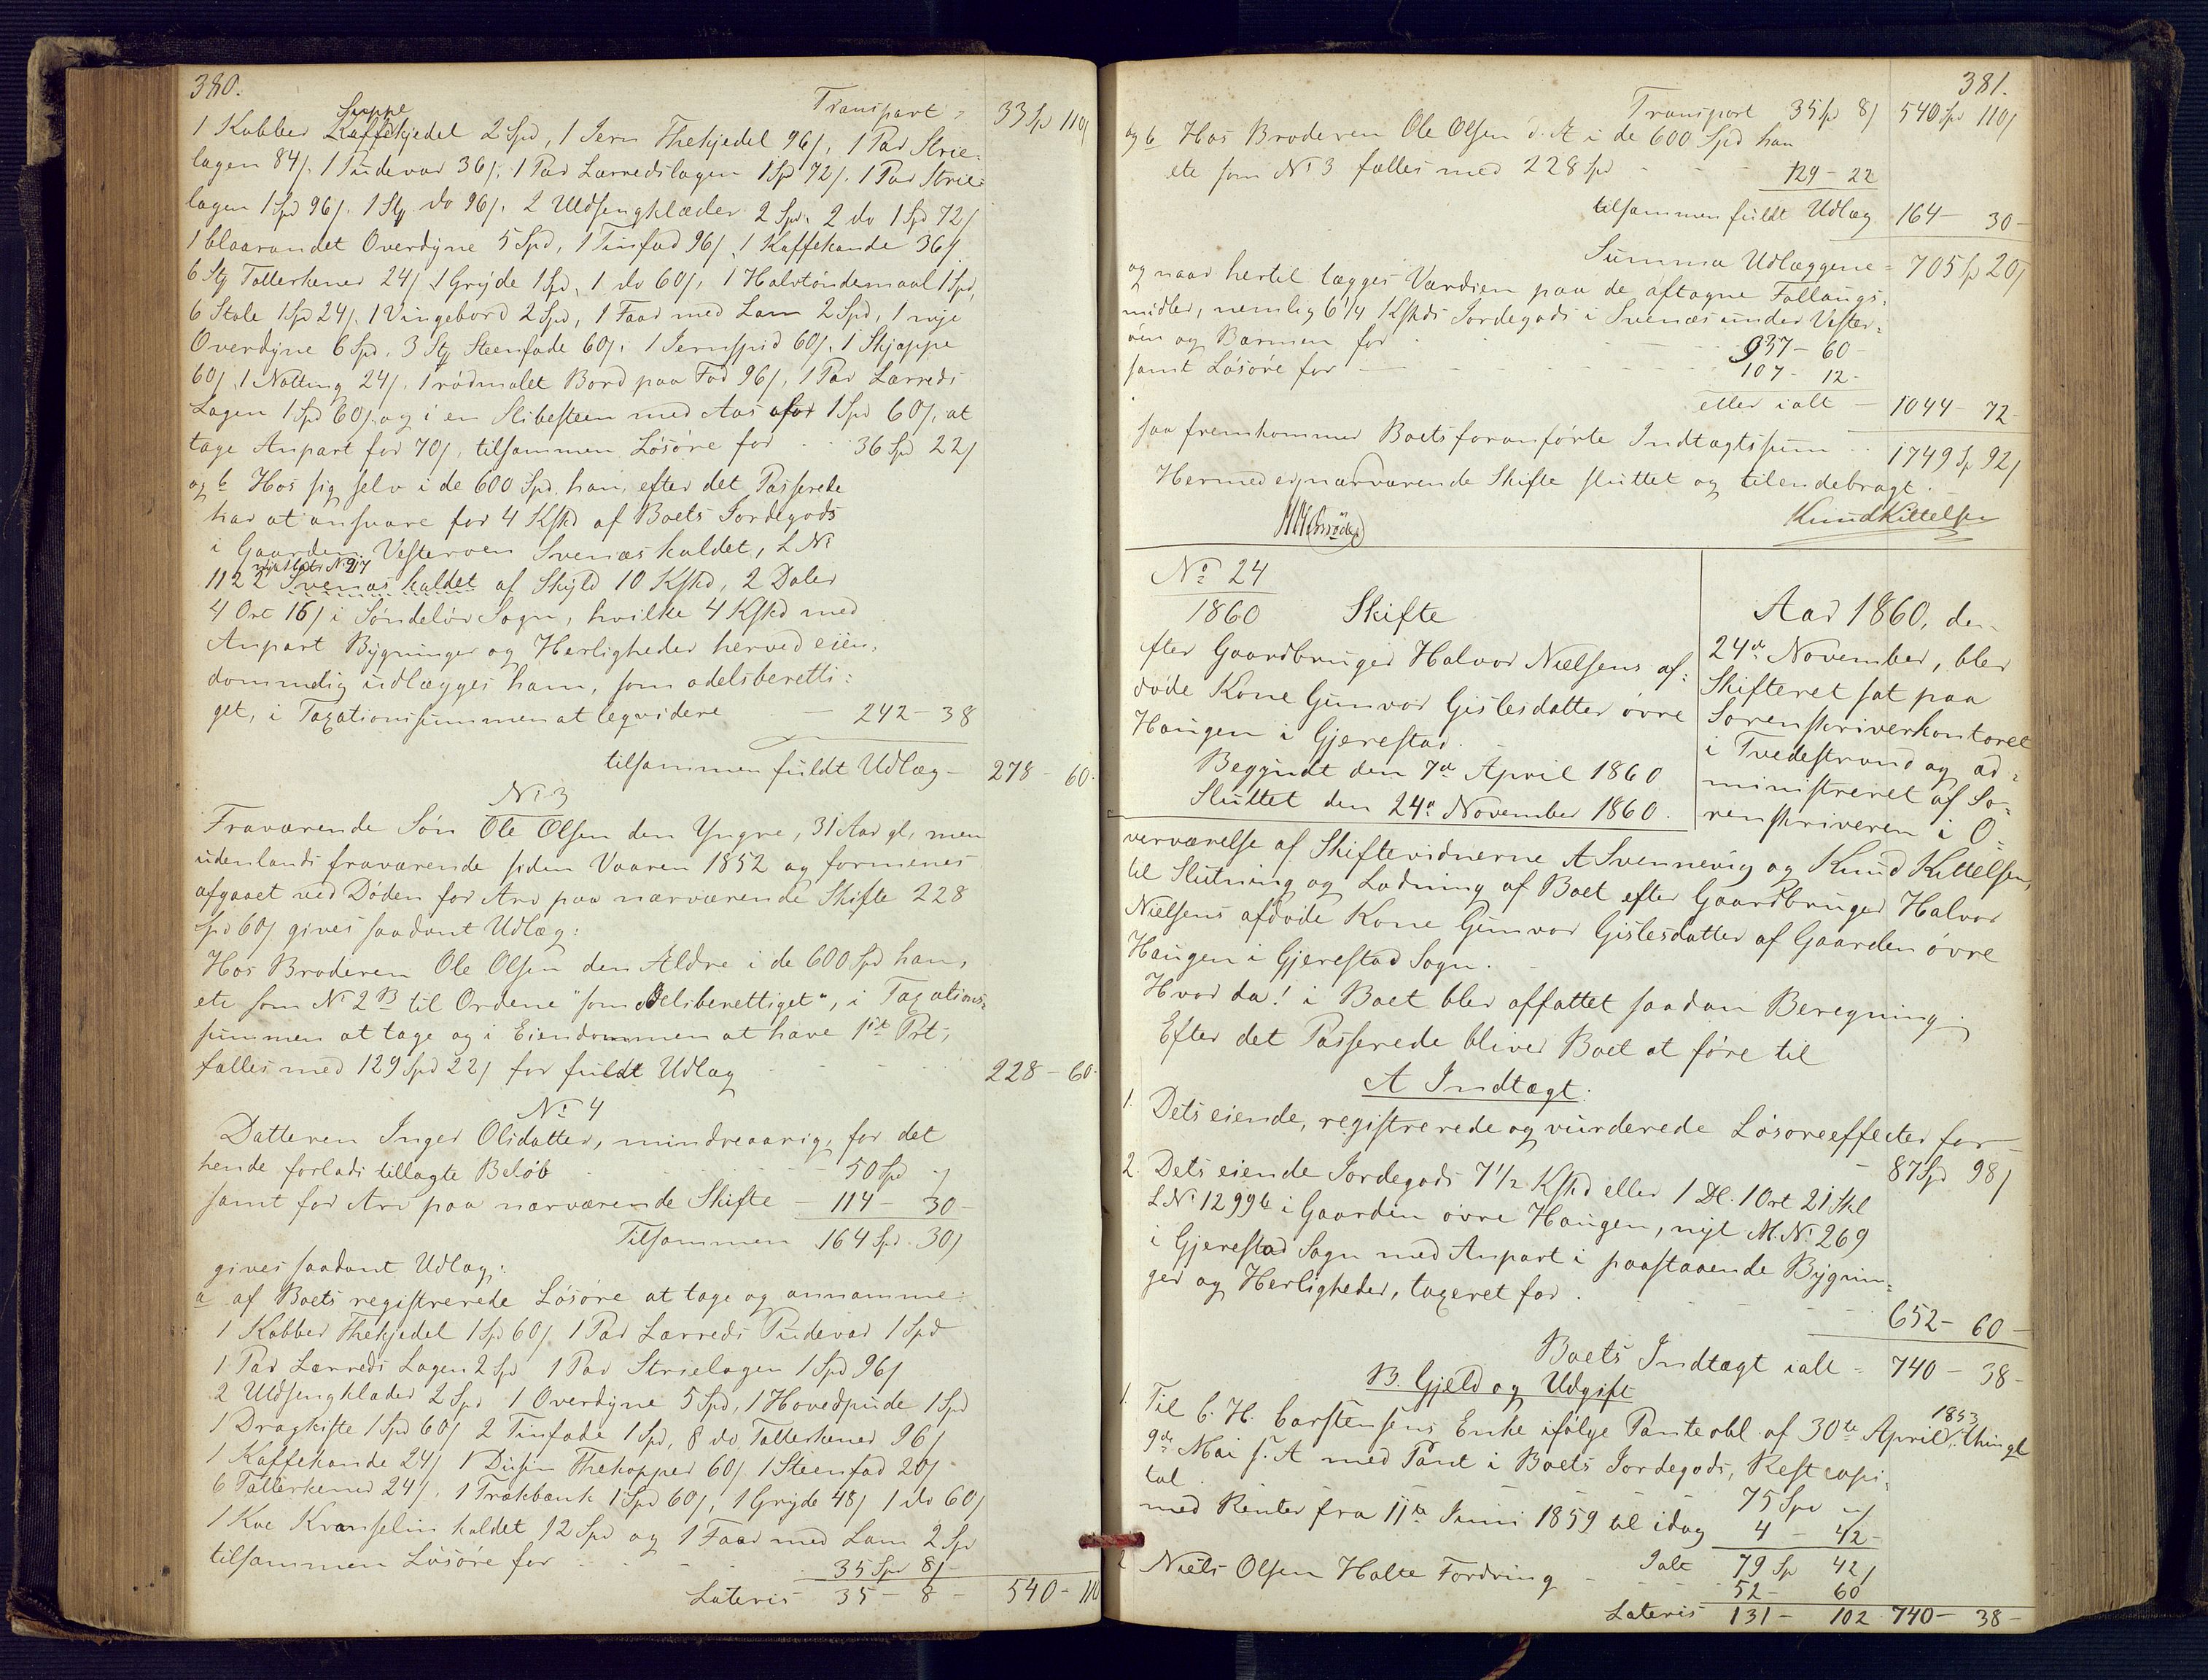 380.
Transport = 33 Spd 110 ʃ
1 Kobber Suppekjedel 2 Spd, 1 Jern Thekjedel 96 ʃ, 1 Par Strie-
lagen 84 ʃ. 1 Pudevar 36 ʃ, 1 Par Lærredslagen 1 Spd 72 ʃ. 1 Par Strie-
lagen 1 Spd 96 ʃ. 1 Stk do 96 ʃ, 2 Uldsengklæder 2 Spd, 2 do 1 Spd 72 ʃ
1 blaarandet Overdyne 5 Spd, 1 Tinfad 96 ʃ, 1 Kaffekande 36 ʃ
6 Stk Tallerkener 24 ʃ, 1 Gryde 1 Spd, 1 do 60 ʃ, 1 Halvtøndemaal 1 Spd,
6 Stole 1 Spd 24 ʃ. 1 Vingebord 2 Spd, 1 Faar med Lam 2 Spd, 1 nye
Overdyne 6 Spd. 3 Stk Steenfade 60 ʃ. 1 Jernspid 60 ʃ. 1 Skjæppe
60 ʃ, 1 Notting 24 ʃ. 1 rødmalet Bord paa Fod 96 ʃ, 1 Par Lærreds
Lagen 1 Spd 60 ʃ, og i en Slibesteen med Aas for 1 Spd 60 ʃ, at
tage Anpart for 70 ʃ, tilsammen Løsøre for . . 36 Spd 22 ʃ
og b Hos sig selv i de 600 Spd. han, efter det Passerede
har at ansvare for 4 Kskd af Boets Jordegods
i Gaarden Vesterøen Svenæs kaldet, L No
1122 Svenæs kaldet af Skyld 10 Kskd, 2 Daler
4 Ort 16 ʃ i Søndeløv Sogn, hvilke 4 Kskd med
Anpart Bygninger og Herligheder herved eien-
dommelig udlægges ham, som odelsberetti-
get, i Taxationssummen at leqvidere — 242 - 38
tilsammen fuldt Udlæg — 278 - 60.
No 3
Fraværende Søn Ole Olsen den Yngre, 31 Aar gl, men
udenlands fraværende siden Vaaren 1852 og formenes
afgaaet ved Døden for Arv paa nærværende Skifte 228
Spd 60 ʃ gives saadant Udlæg:
Hos Broderen Ole Olsen den Ældre i de 600 Spd han,
etc som No 2 B til Ordene "som odelsberettiget", i Taxations-
summen at tage og i Eiendommen at have 1st Prt,
fælles med 129 Spd 22 ʃ for fuldt Udlæg 228 - 60.
No 4
Datteren Inger Olsdatter, mindreaarig, for det
hende forlods tillagte Beløb 50 Spd " ʃ
samt for Arv paa nærværende Skifte — 114 - 30 -
Tilsammen 164 Spd. 30 ʃ
gives saadant Udlæg:
a af Boets registrerede Løsøre at tage og annamme:
1 Kobber Thekjedel 1 Spd 60 ʃ, 1 Par Lærreds Pudevar 1 Spd
1 Par Lærreds Lagen 2 Spd 1 Par Strielagen 1 Spd 96 ʃ
2 Uldsengklæder 2 Spd 1 Overdyne 5 Spd, 1 Hovedpude 1 Spd
1 Dragkiste 1 Spd 60 ʃ 2 Tinfade 1 Spd, 8 do Tallerkener 96 ʃ
1 Kaffekande 24 ʃ 1 Dusin Thekopper 60 ʃ 1 Steenfad 20 ʃ
6 Tallerkener 24 ʃ, 1 Trækbænk 1 Spd 60 ʃ, 1 Gryde 48 ʃ 1 do 60 ʃ
1 Koe Kranselin kaldet 12 Spd og 1 Faar med Lam 2 Spd
tilsammen Løsøre for . . . 35 Spd 8 ʃ -
Lateris 35 - 8 - 540 - 110
381.
Transport 35 Spd 8 ʃ 540 Spd 110 ʃ
og b Hos Broderen Ole Olsen d. Æ i de 600 Spd han
etc som No 3 fælles med 228 Spd 129 - 22
tilsammen fuldt Udlæg 164 - 30 -
Summa Udlæggene = 705 Sp 20 ʃ
og naar hertil lægges Værdien paa de aftagne Fallangs-
midler, nemlig 6 1/4 Kskds Jordegods i Svenæs under Vester-
øen og Barmen for 937 - 60 -
samt Løsøre for — 107 - 12 -
eller ialt — 1044 - 72 -
saa fremkommer Boets foranførte Indtægtssum . . 1749 Sp 92 ʃ
Hermed er nærværende Skifte sluttet og tilendebragt.
Knud Kittelsen
No 24
1860 Skifte
efter Gaardbruger Halvor Nielsens af-
døde Kone Gunvor Gislesdatter øvre
Haugen i Gjerestad.
Begyndt den 7de April 1860
Sluttet den 24de November 1860.
Aar 1860, den
24de November, blev
Skifteret sat paa
Sorenskriverkontoret
i Tvedestrand og ad-
ministreret af So-
renskriveren i O-
verværelse af Skiftevidnerne A Svennevig og Knud Kittelsen,
til Slutning og Lodning af Boet efter Gaardbruger Halvor
Nielsens afdøde Kone Gunvor Gislesdatter af Gaarden øvre
Haugen i Gjerestad Sogn.
Hvor da! i Boet blev affattet saadan Beregning.
Efter det Passerede bliver Boet at føre til
A Indtægt:
1. Dets eiende, registrerede og vurderede Løsøreeffecter for —
87 Spd 98 ʃ
2. Dets eiende Jordegods 7 1/2 Kskd eller 1 Dl. 1 Ort 21 Skl
L No 1299 b i Gaarden øvre Haugen, nyt M. No 269
i Gjerestad Sogn med Anpart i paastaaende Bygnin-
ger og Herligheder, taxeret for . 652 - 60 -
Boets Indtægt ialt = 740 - 38 -
B. Gjeld og Udgift
1. Til C. H. Carstensens Enke ifølge Panteobl. af 30te April 1853, thingl
9de Mai s. A med Pant i Boets Jordegods, Restcapi-
tal . 75 Spd " ʃ
med Renter fra 11te Juni 1859 til idag 4 - 42 -
Ialt 79 Sp 42 ʃ
2 Niels Olsen Holte Fordring 52 - 60
Lateris 131 - 102 740 - 38 -